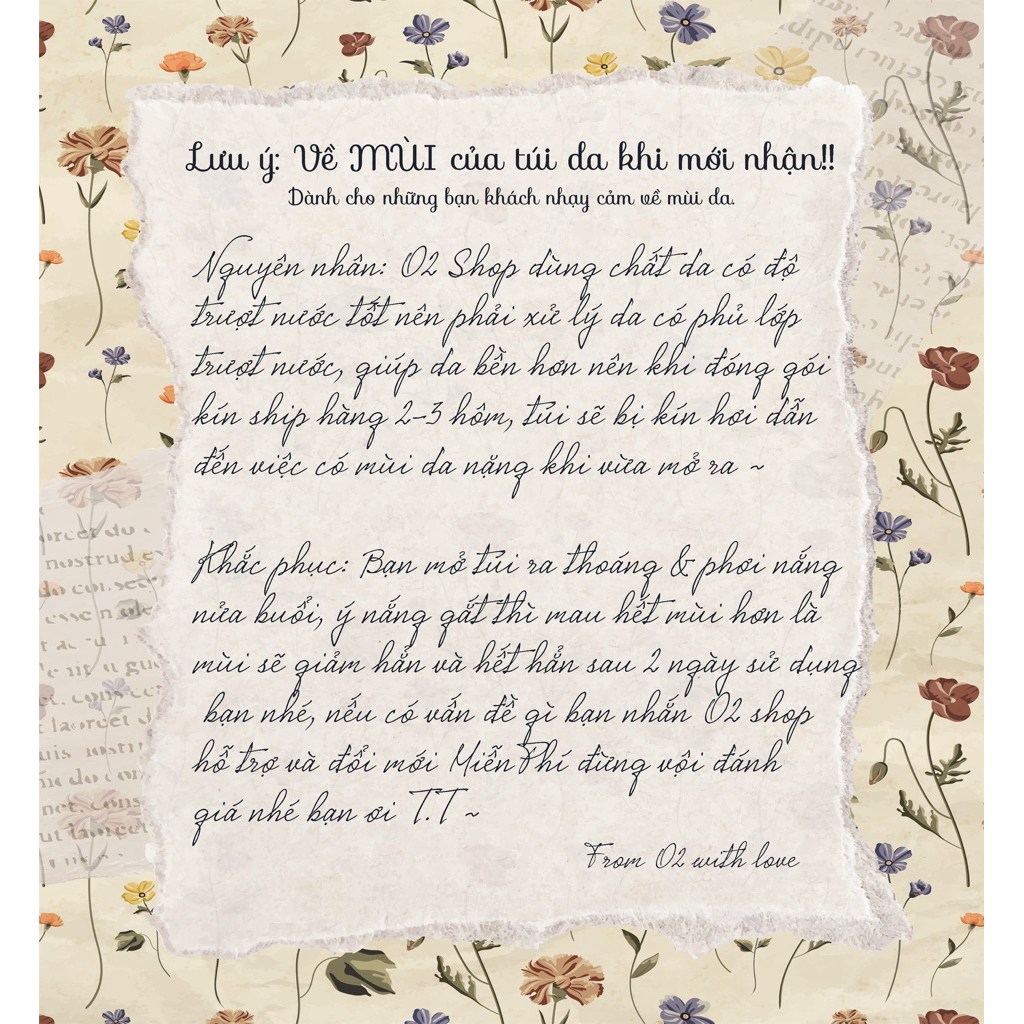 Lưu ý: Về MÙI của túi da khi mới nhận!!
Dành cho những bạn khách nhạy cảm về mùi da.
Nguyên nhân: O2 Shop dùng chất da có độ
trượt nước tốt nên phải xử lý da có phủ lớp
trượt nước, giúp da bền hơn nên khi đóng gói
kín ship hàng 2-3 hôm, túi sẽ bị kín hơi dẫn
đến việc có mùi da nặng khi vừa mở ra ~
Khắc phục: Bạn mở túi ra thoáng & phơi nắng
nửa buổi, ý nắng gắt thì mau hết mùi hơn là
mùi sẽ giảm hẳn và hết hẳn sau 2 ngày sử dụng
bạn nhé, nếu có vấn đề gì bạn nhắn O2 shop
hỗ trợ và đổi mới Miễn Phí đừng vội đánh
giá nhé bạn ơi T.T ~
From O2 with love